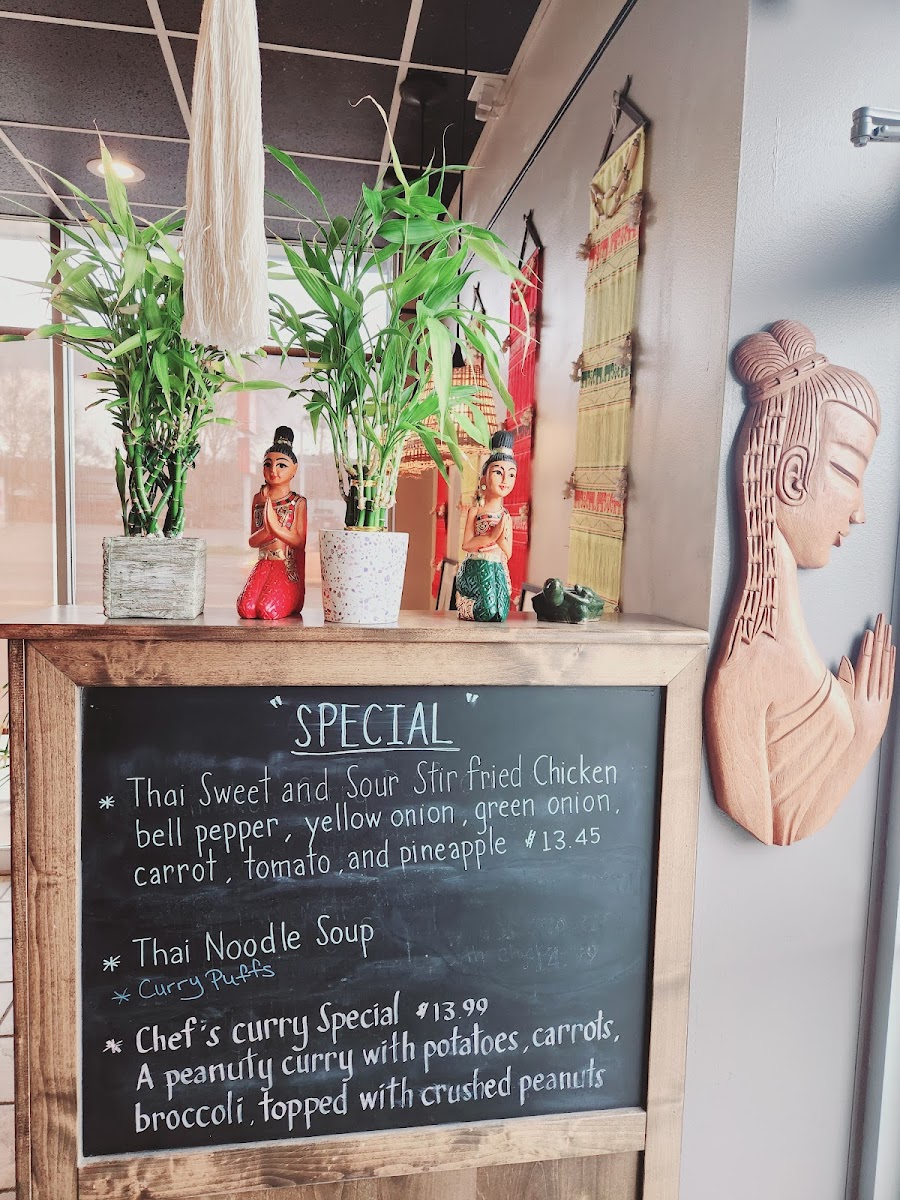 "SPECIAL"
* Thai Sweet and Sour Stir fried Chicken
bell pepper, yellow onion, green onion,
carrot, tomato, and pineapple $13.45
* Thai Noodle Soup
* Curry Puffs
* Chef's curry Special $13.99
A peanuty curry with potatoes, carrots,
broccoli, topped with crushed peanuts